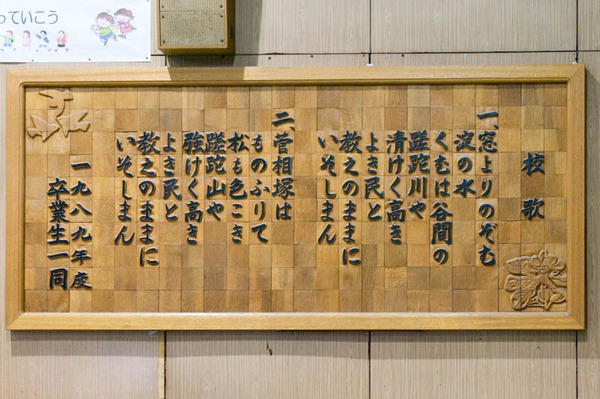 っていこう
校歌
一、窓よりのぞむ
淀の水
くむは谷間の
蹉跎川や
清けく高き
よき民と
教之のままに
いそしまん
二、菅相塚は
ものふりて
松も色こき
蹉跎山や
強けく高き
よき民と
教之のままに
いそしまん
一九八九年度
卒業生一同